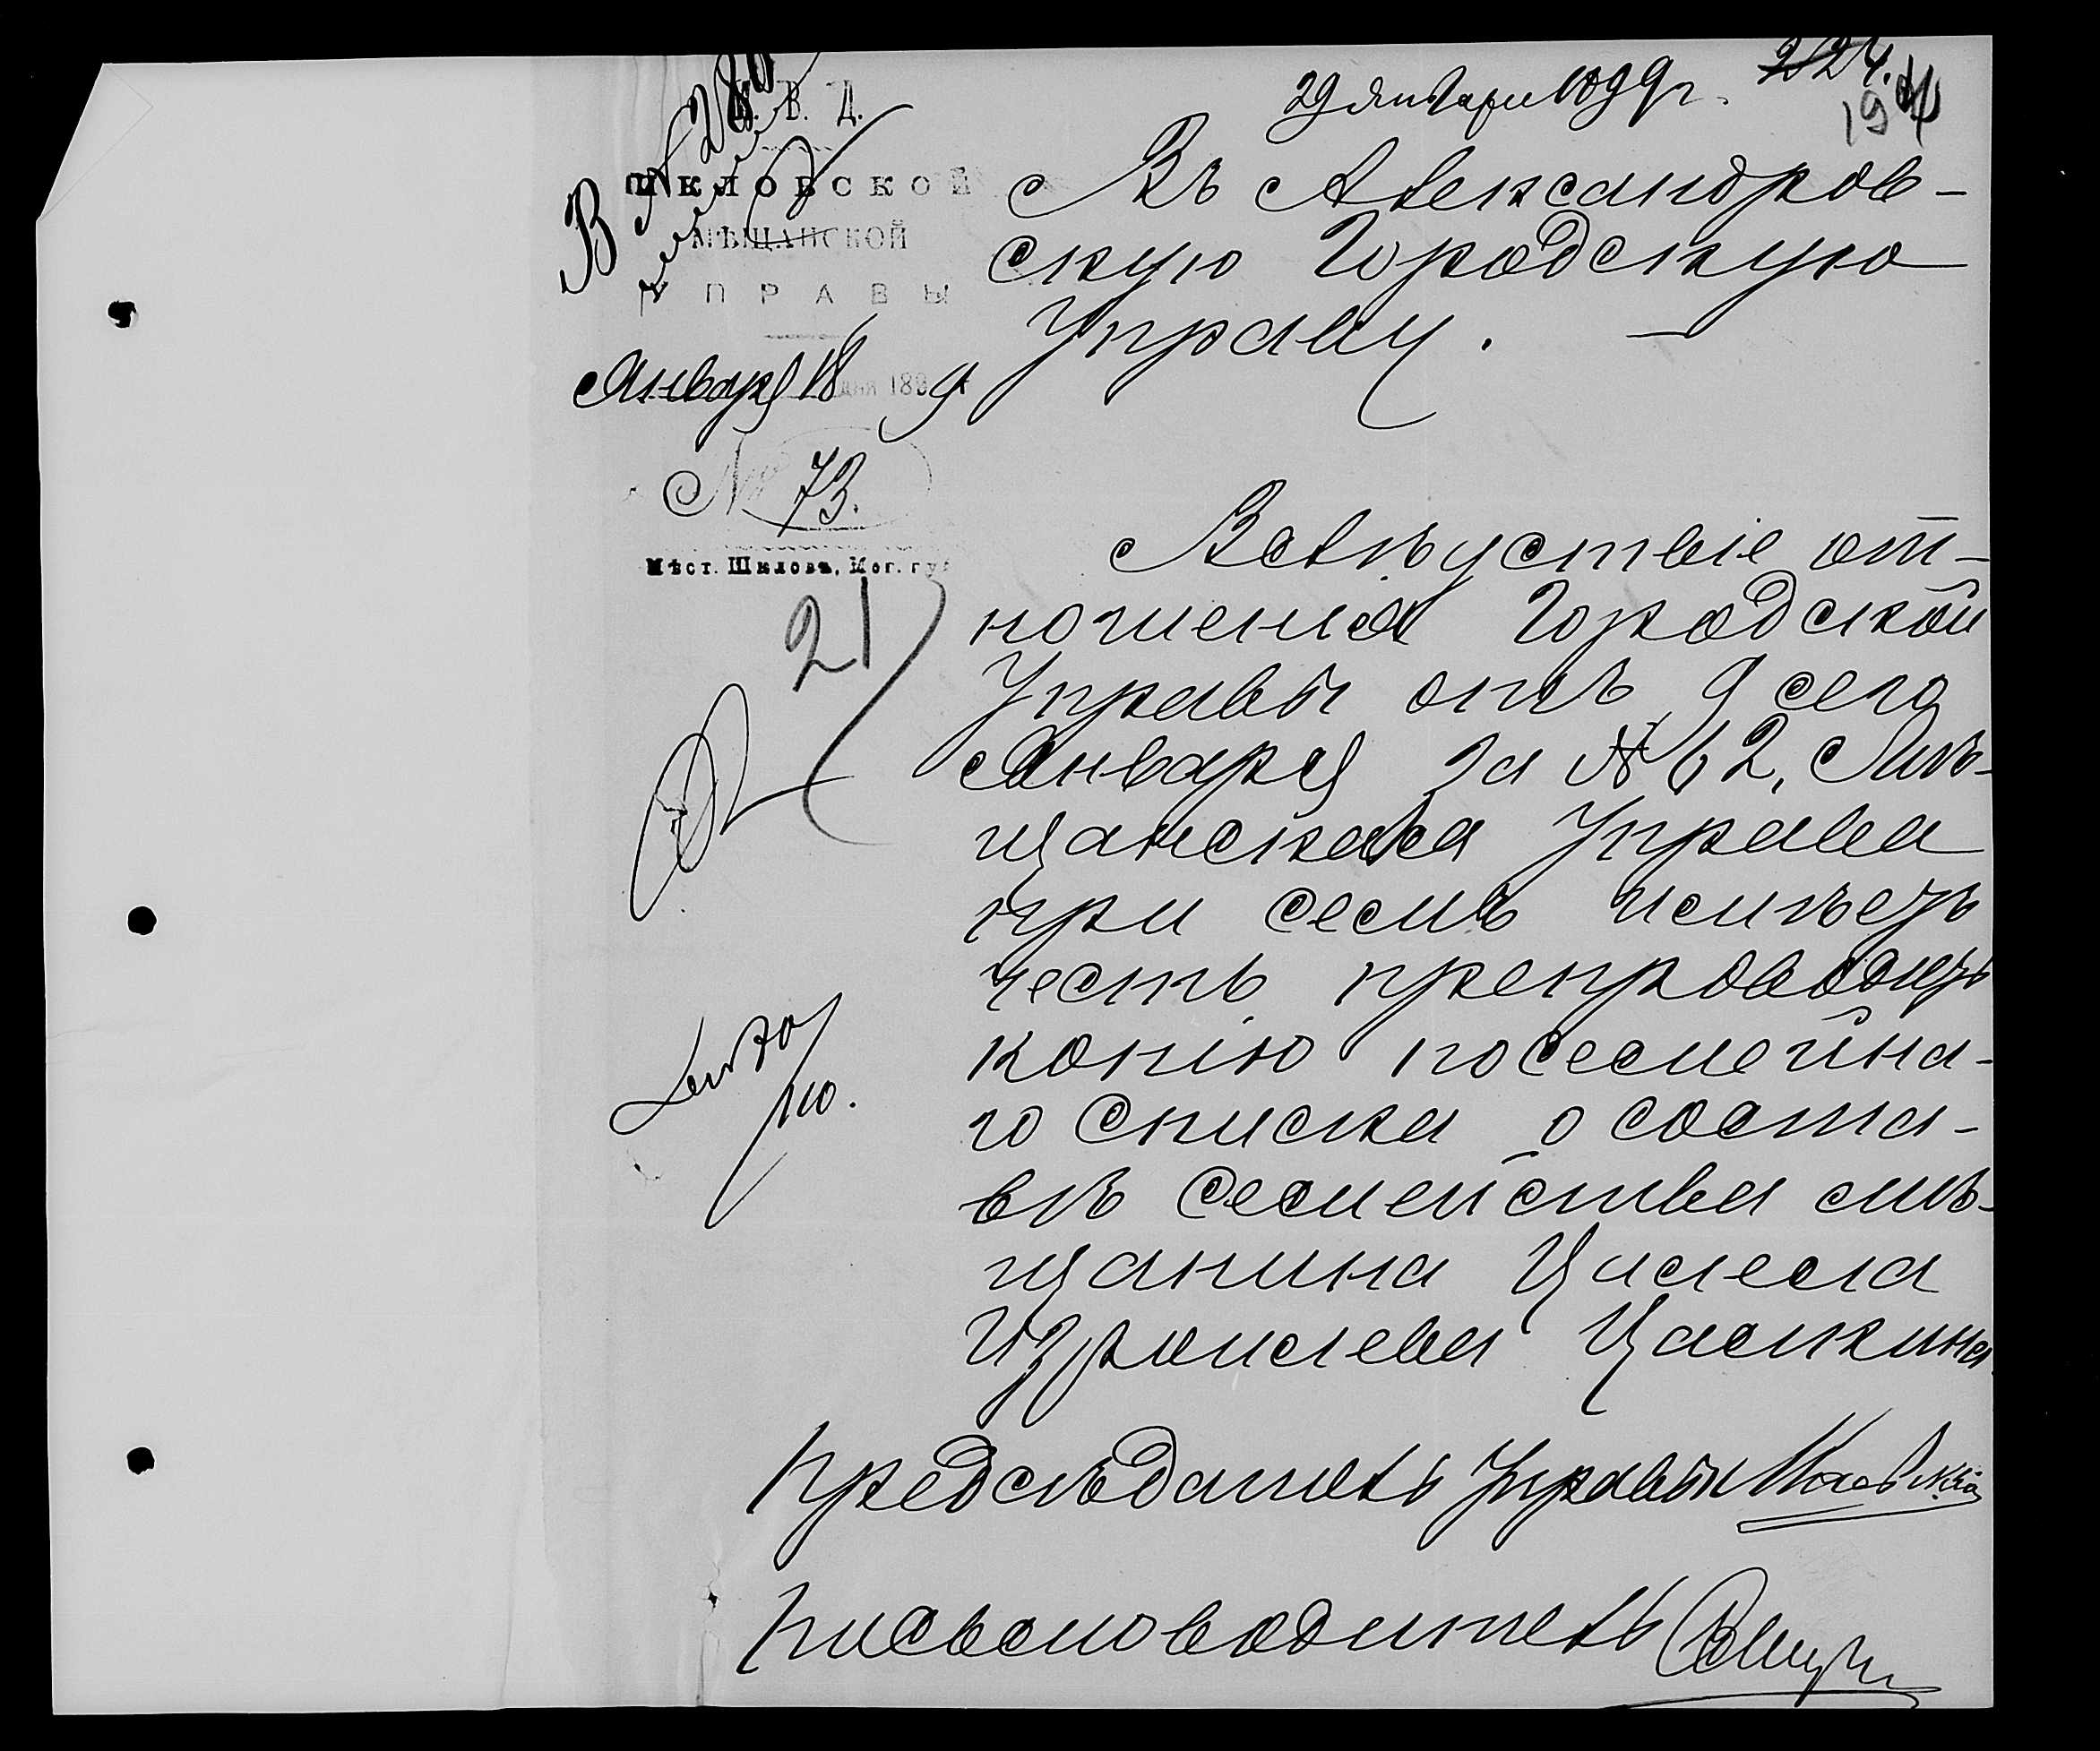 29 января 1899 г. 224.
19
М. В. Д.
ШКЛОВСКОЙ
МѢЩАНСКОЙ
УПРАВЫ
Января 18 дня 1899
№ 73.
Мѣст. Шкловъ, Мог. губ
21
Въ Александров-
скую Городскую
Управу. —
Вслѣдствіе от-
ношенія Городской
Управы отъ 9 сего
Января за № 62, Мѣ-
щанская Управа
при семъ имѣетъ
честь препроводить
копію посемейна-
го списка о соста-
вѣ семейства мѣ-
щанина Цилела
Израилева Цалкина
Предсѣдатель Управы
Письмоводитель